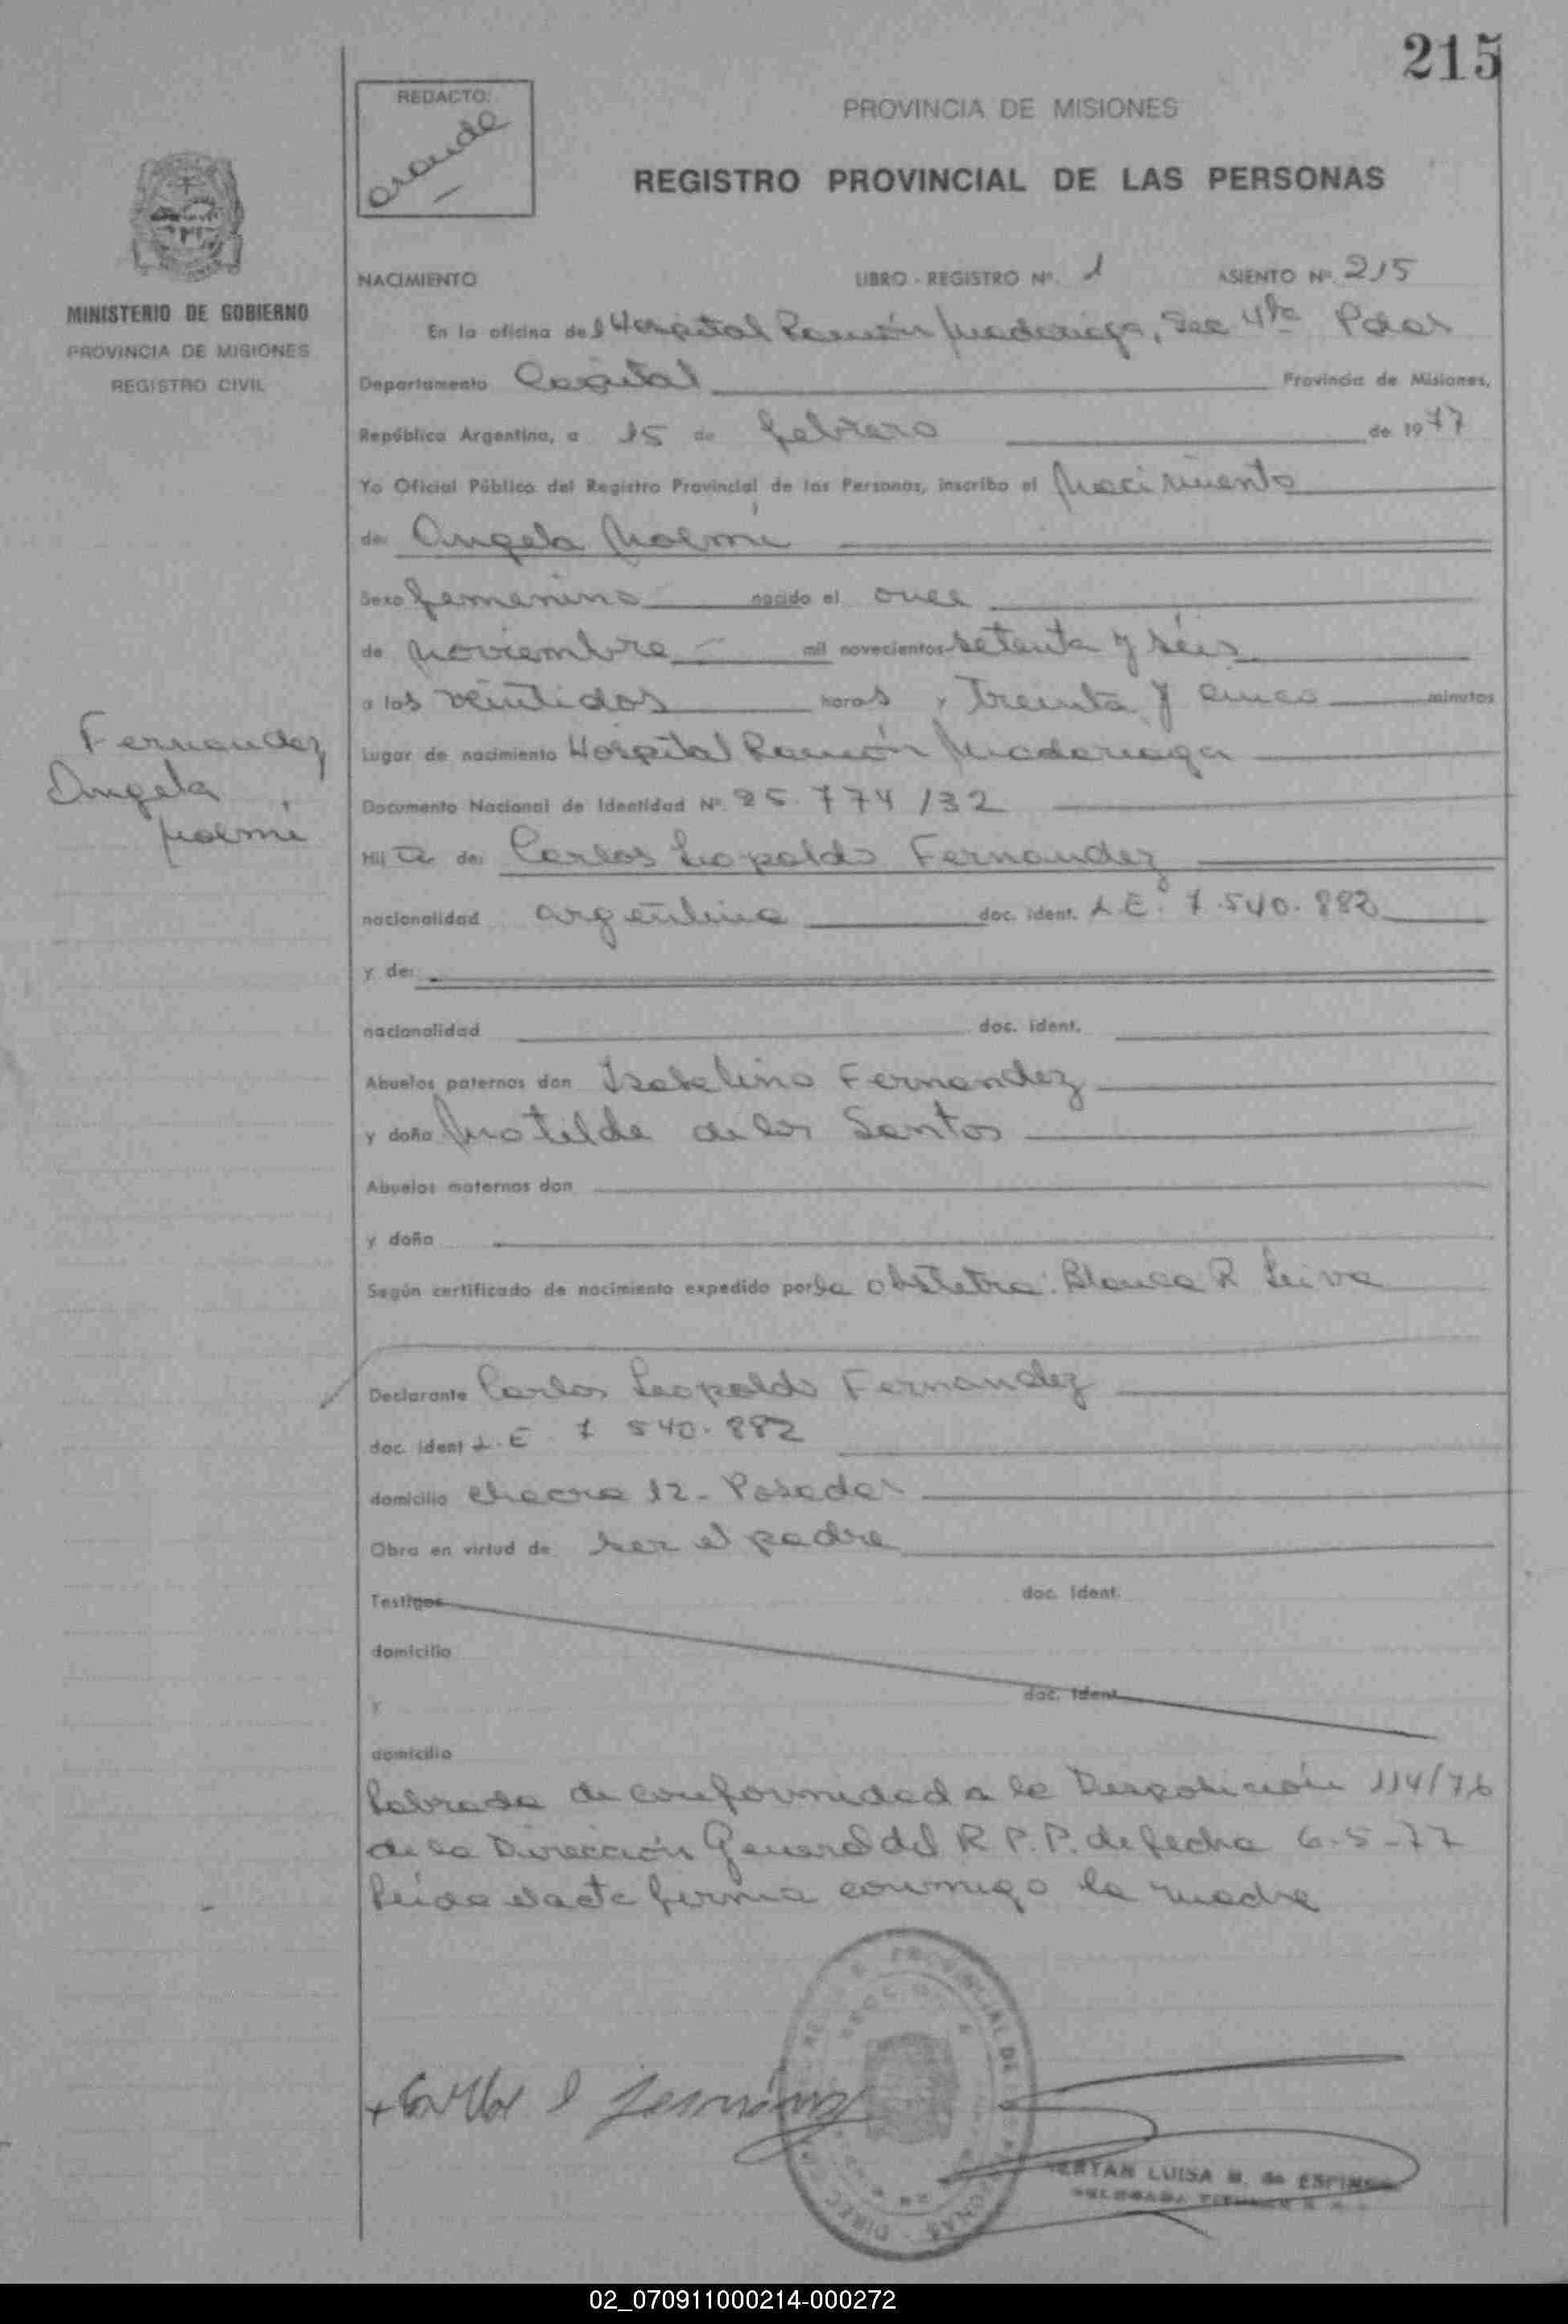 215
REDACTO:
PROVINCIA DE MISIONES
REGISTRO PROVINCIAL DE LAS PERSONAS
MINISTERIO DE GOBIERNO
PROVINCIA DE MISIONES
REGISTRO CIVIL
NACIMIENTO LIBRO - REGISTRO Nº. 1 ASIENTO Nº. 215
En la oficina del Hospital Ramón Madariaga, Sec 4ta Pdas
Departamento Capital Provincia de Misiones,
República Argentina, a 15 de febrero de 1977
Yo Oficial Público del Registro Provincial de las Personas, inscribo el Nacimiento
de: Angela Noemí
Sexo femenino nacido el once
de noviembre mil novecientos setenta y séis
a las veintidos horas, treinta y cinco minutos
Lugar de nacimiento Hospital Ramón Madariaga
Fernandez
Angela
Noemí
Documento Nacional de Identidad Nº 25.774/32
Hija de: Carlos Leopoldo Fernandez
nacionalidad argentina doc. ident. L.E. 7.540.882
y de:
nacionalidad doc. ident.
Abuelos paternos don Isabelino Fernandez
y doña Matilde de los Santos
Abuelos maternos don
y doña
Según certificado de nacimiento expedido por la obstetra: Blanca R Leiva
Declarante Carlos Leopoldo Fernandez
doc. ident L.E. 7 540.882
domicilio chacra 12 - Posadas
Obra en virtud de ser el padre
Testigos doc. Ident.
domicilio
y doc. Ident.
domicilio
Labrada de conformidad a la Disposición 114/76
de la Dirección General del R.P.P. de fecha 6-5-77
Leida el acta firma conmigo la madre
LUISA B. de ESPINOSA
02_070911000214-000272